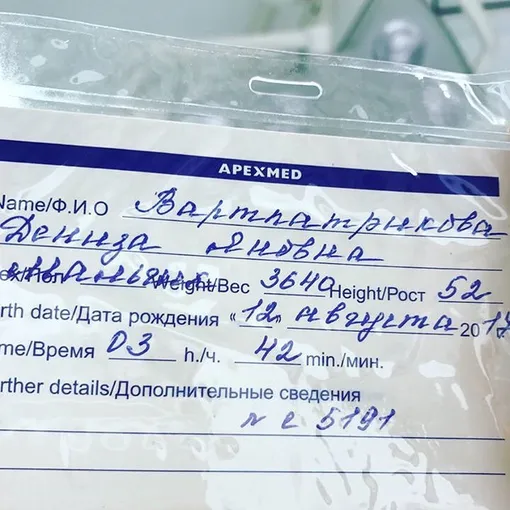 APEXMED
Name/Ф.И.О Вартпатрикова
Дениза Яновна
Sex/Пол Weight/Вес 3640 Height/Рост 52
rth date/Дата рождения «12» августа 2017
me/Время 03 h./ч. 42 min./мин.
rther details/Дополнительные сведения
л с 5191